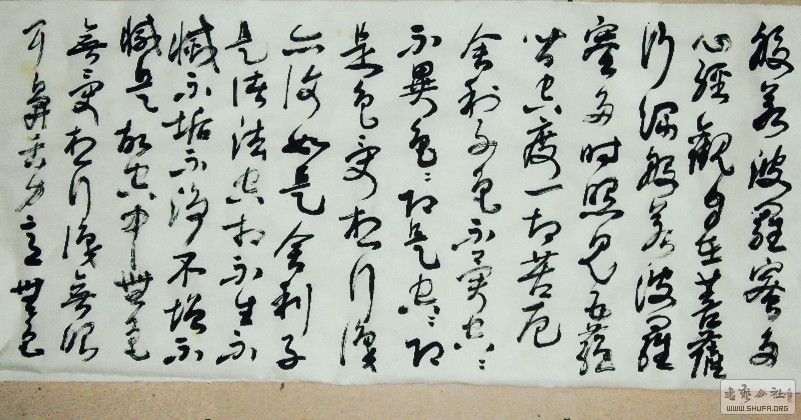 般若波羅蜜多
心經觀自在菩薩
行深般若波羅
蜜多時照見五蘊
皆空度一切苦厄
舍利子色不異空〻
不異色〻即是空〻即
是色受想行識
亦復如是舍利子
是諸法空相不生不
滅不垢不淨不增不
減是故空中無色
無受想行識無眼
耳鼻舌身意無色
书艺公社
WWW.SHUFA.ORG